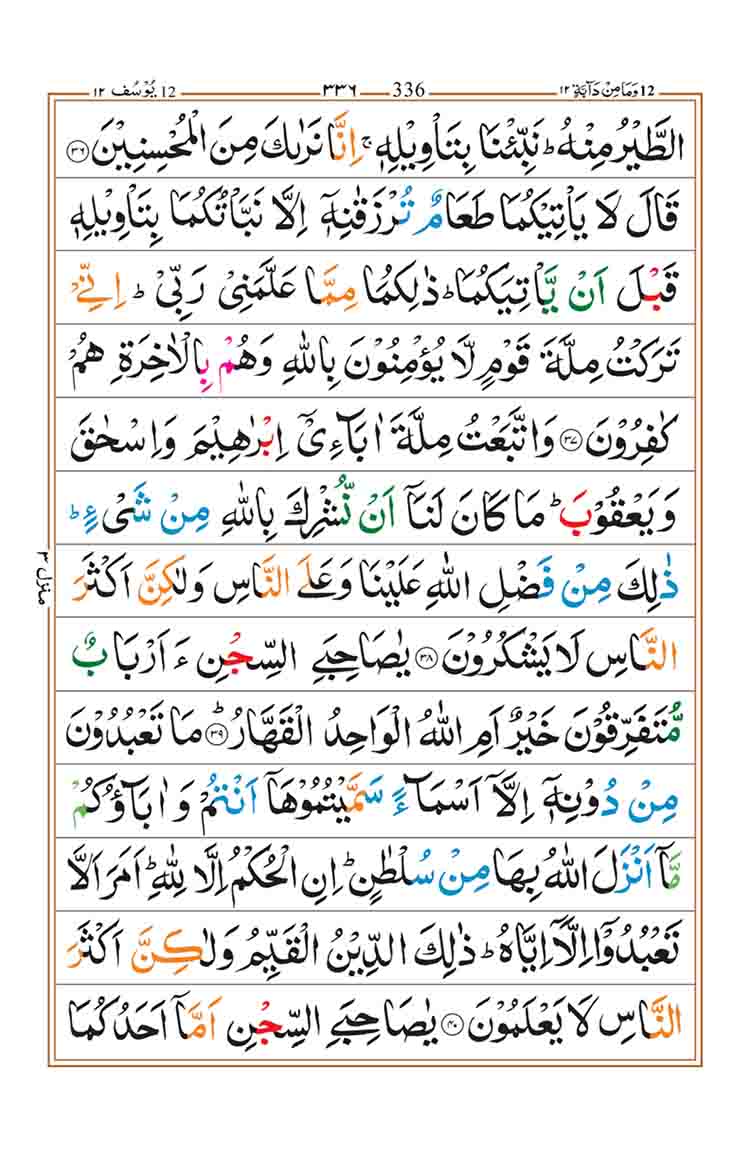 12 وَمَا مِنْ دَآبَّةٍ ١٢ 336 ٣٣٦ 12 يُوْسُف ١٢
الطَّيْرُ مِنْهُ ؕ نَبِّئْنَا بِتَاْوِيْلِهٖ ۚ اِنَّا نَرٰىكَ مِنَ الْمُحْسِنِيْنَ ﴿۳۶﴾
قَالَ لَا يَاْتِيْكُمَا طَعَامٌ تُرْزَقٰنِهٖۤ اِلَّا نَبَّاْتُكُمَا بِتَاْوِيْلِهٖ
قَبْلَ اَنْ يَّاْتِيَكُمَا ؕ ذٰلِكُمَا مِمَّا عَلَّمَنِيْ رَبِّيْ ؕ اِنِّيْ
تَرَكْتُ مِلَّةَ قَوْمٍ لَّا يُؤْمِنُوْنَ بِاللّٰهِ وَهُمْ بِالْاٰخِرَةِ هُمْ
كٰفِرُوْنَ ﴿۳۷﴾ وَاتَّبَعْتُ مِلَّةَ اٰبَآءِيْۤ اِبْرٰهِيْمَ وَاِسْحٰقَ
وَيَعْقُوْبَ ؕ مَا كَانَ لَنَاۤ اَنْ نُّشْرِكَ بِاللّٰهِ مِنْ شَيْءٍ ؕ
ذٰلِكَ مِنْ فَضْلِ اللّٰهِ عَلَيْنَا وَعَلَى النَّاسِ وَلٰكِنَّ اَكْثَرَ
النَّاسِ لَا يَشْكُرُوْنَ ﴿۳۸﴾ يٰصَاحِبَيِ السِّجْنِ ءَاَرْبَابٌ
مُّتَفَرِّقُوْنَ خَيْرٌ اَمِ اللّٰهُ الْوَاحِدُ الْقَهَّارُ ﴿۳۹﴾ؕ مَا تَعْبُدُوْنَ
مِنْ دُوْنِهٖۤ اِلَّاۤ اَسْمَآءً سَمَّيْتُمُوْهَاۤ اَنْتُمْ وَاٰبَآؤُكُمْ
مَّاۤ اَنْزَلَ اللّٰهُ بِهَا مِنْ سُلْطٰنٍ ؕ اِنِ الْحُكْمُ اِلَّا لِلّٰهِ ؕ اَمَرَ اَلَّا
تَعْبُدُوْۤا اِلَّاۤ اِيَّاهُ ؕ ذٰلِكَ الدِّيْنُ الْقَيِّمُ وَلٰكِنَّ اَكْثَرَ
النَّاسِ لَا يَعْلَمُوْنَ ﴿۴۰﴾ يٰصَاحِبَيِ السِّجْنِ اَمَّاۤ اَحَدُكُمَا
منزل ٣